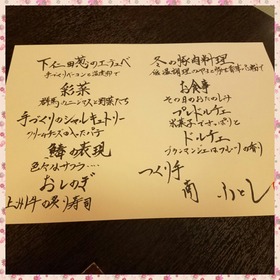 下仁田葱のエテュベ
手づくりベーコンと温度卵で
彩菜
群馬ハーニーマスと野菜たち
手づくりのシャルキュトリー
クリームチーズの入ったパテ
鱗の表現
色々なサラダ……
おしのぎ
上州牛の炙り寿司
冬の豚肉料理
お食事
その日のおたのしみ
プレドルチェ
氷菓子でさっぱりと
ドルチェ
ブランマンジェはフレーズの香り
つくり手
南 ふとし